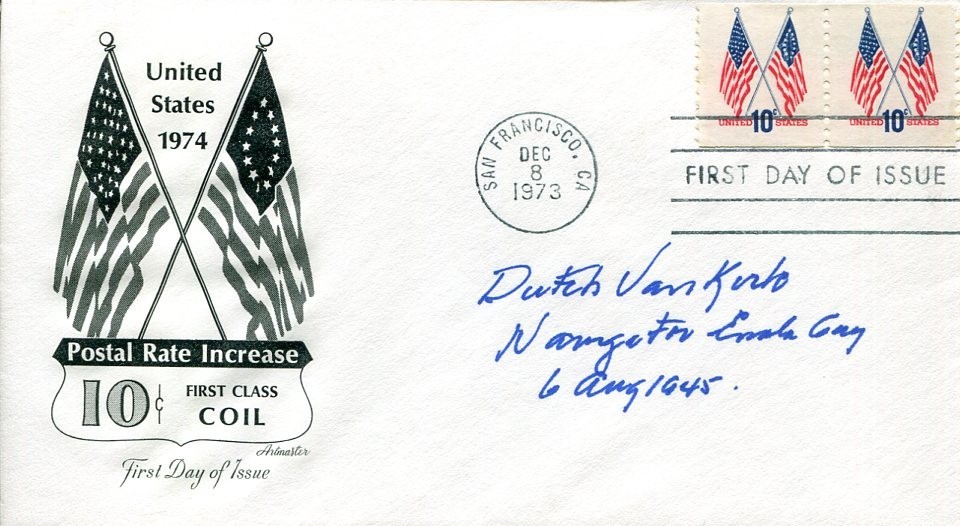 United
States
1974
Postal Rate Increase
10¢ FIRST CLASS
COIL
Artmaster
First Day of Issue
SAN FRANCISCO, CA
DEC
8
1973
10c
UNITED STATES
10c
UNITED STATES
FIRST DAY OF ISSUE
Dutch Van Kirk
Navigator Enola Gay
6 Aug 1945.